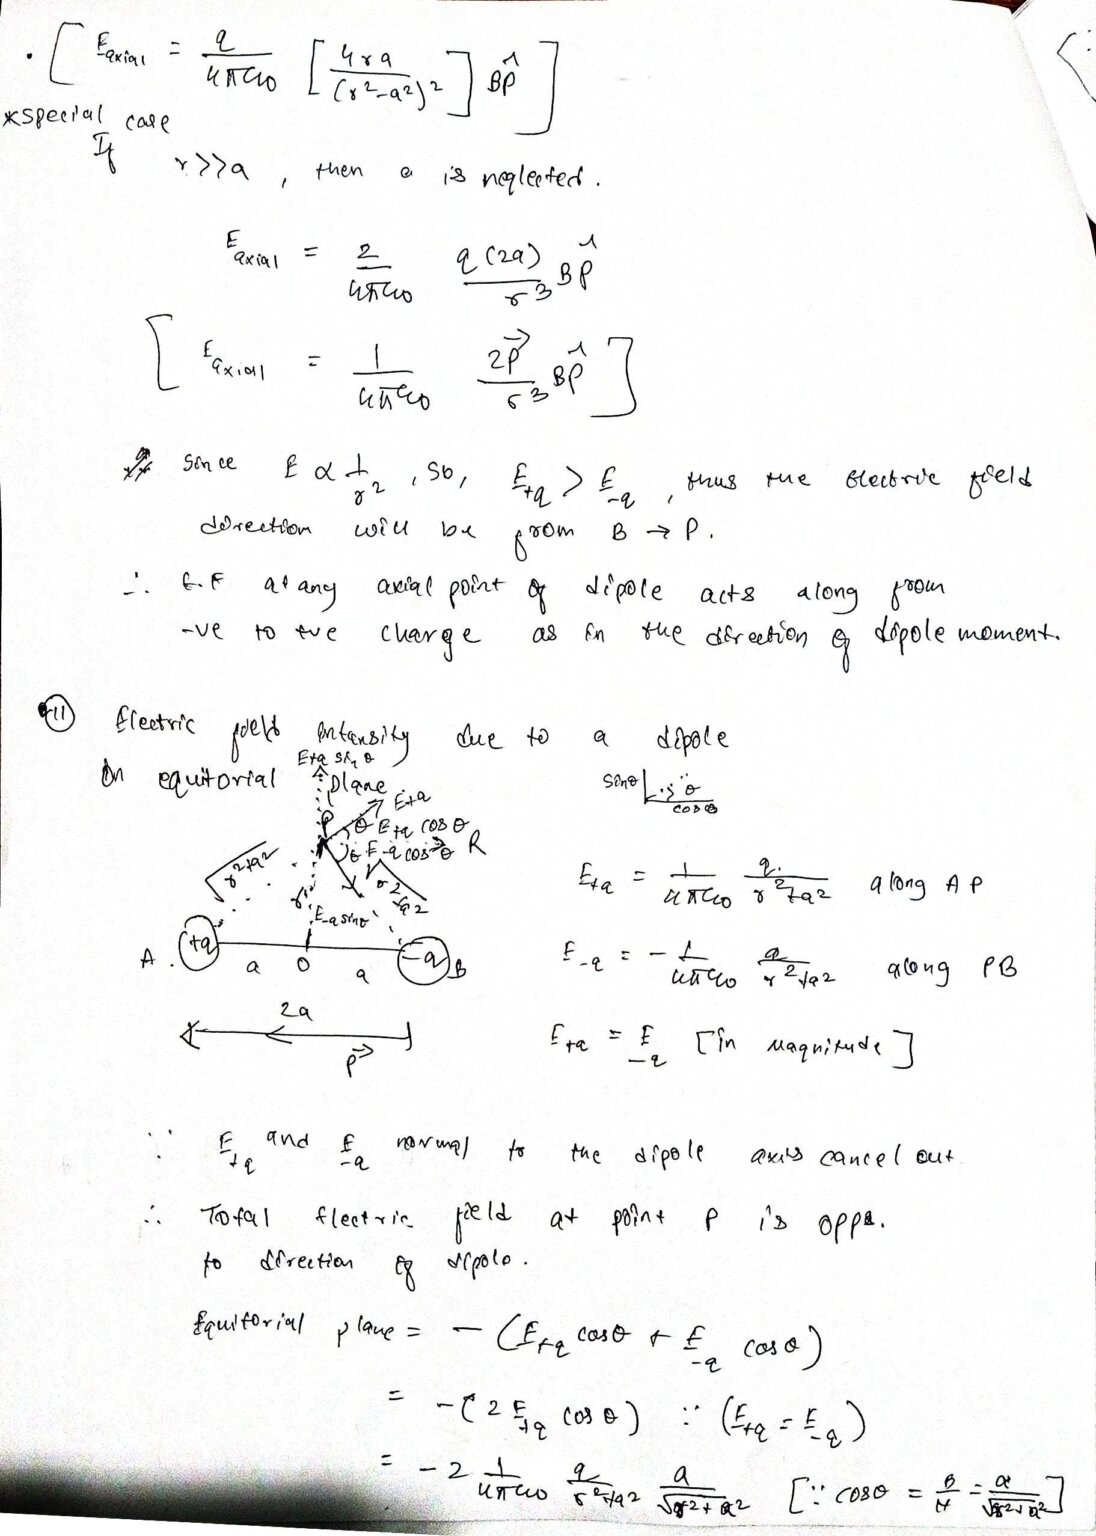 . [ E axial = q/4πε0 [ 4ra/(r²-a²)² ] BP̂ ]
*special case
If r>>a , then a is neglected.
E axial = 2/4πε0 q(2a)/r³ BP̂
[ E axial = 1/4πε0 2P⃗/r³ BP̂ ]
Since E α 1/r² , so, E+q > E-q , thus the Electric field
direction will be from B → P.
∴ E.F at any axial point of dipole acts along from
-ve to +ve charge as in the direction of dipole moment.
11 Electric field Intensity due to a dipole
On equitorial plane
E+q sinθ
sinθ θ
cosθ
E+q
P θ E+q cosθ
θ E-q cosθ R
r²+a² r r²+a²
E-q sinθ
A. +q -q B
a O a
2a
P⃗
E+q = 1/4πε0 q/r²+a² along AP
E-q = - 1/4πε0 q/r²+a² along PB
E+q = E-q [in magnitude]
∵ E+q and E-q normal to the dipole axis cancel out
∴ Total electric field at point P is opps.
to direction of dipole.
Equitorial plane = - (E+q cosθ + E-q cosθ)
= -(2 E+q cosθ) ∵ (E+q = E-q)
= -2 1/4πε0 q/r²+a² a/√r²+a² [∵ cosθ = B/H = a/√r²+a²]